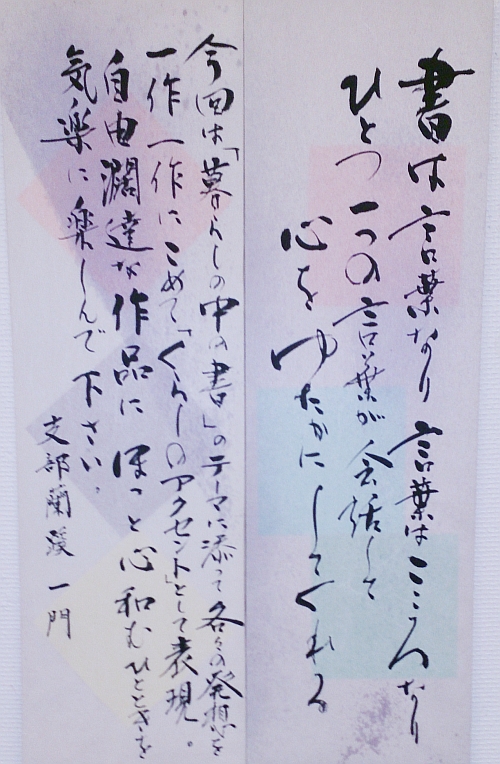 書は言葉なり 言葉はこころなり
ひとつ一つの言葉が会話して
心をゆたかにしてくれる
今回は「暮らしの中の書」のテーマに添って各々の発想を
一作一作にこめて「くらしのアクセント」として表現。
自由濶達な作品にほっと心和むひとときを
気楽に楽しんで下さい。
支部蘭渓一門